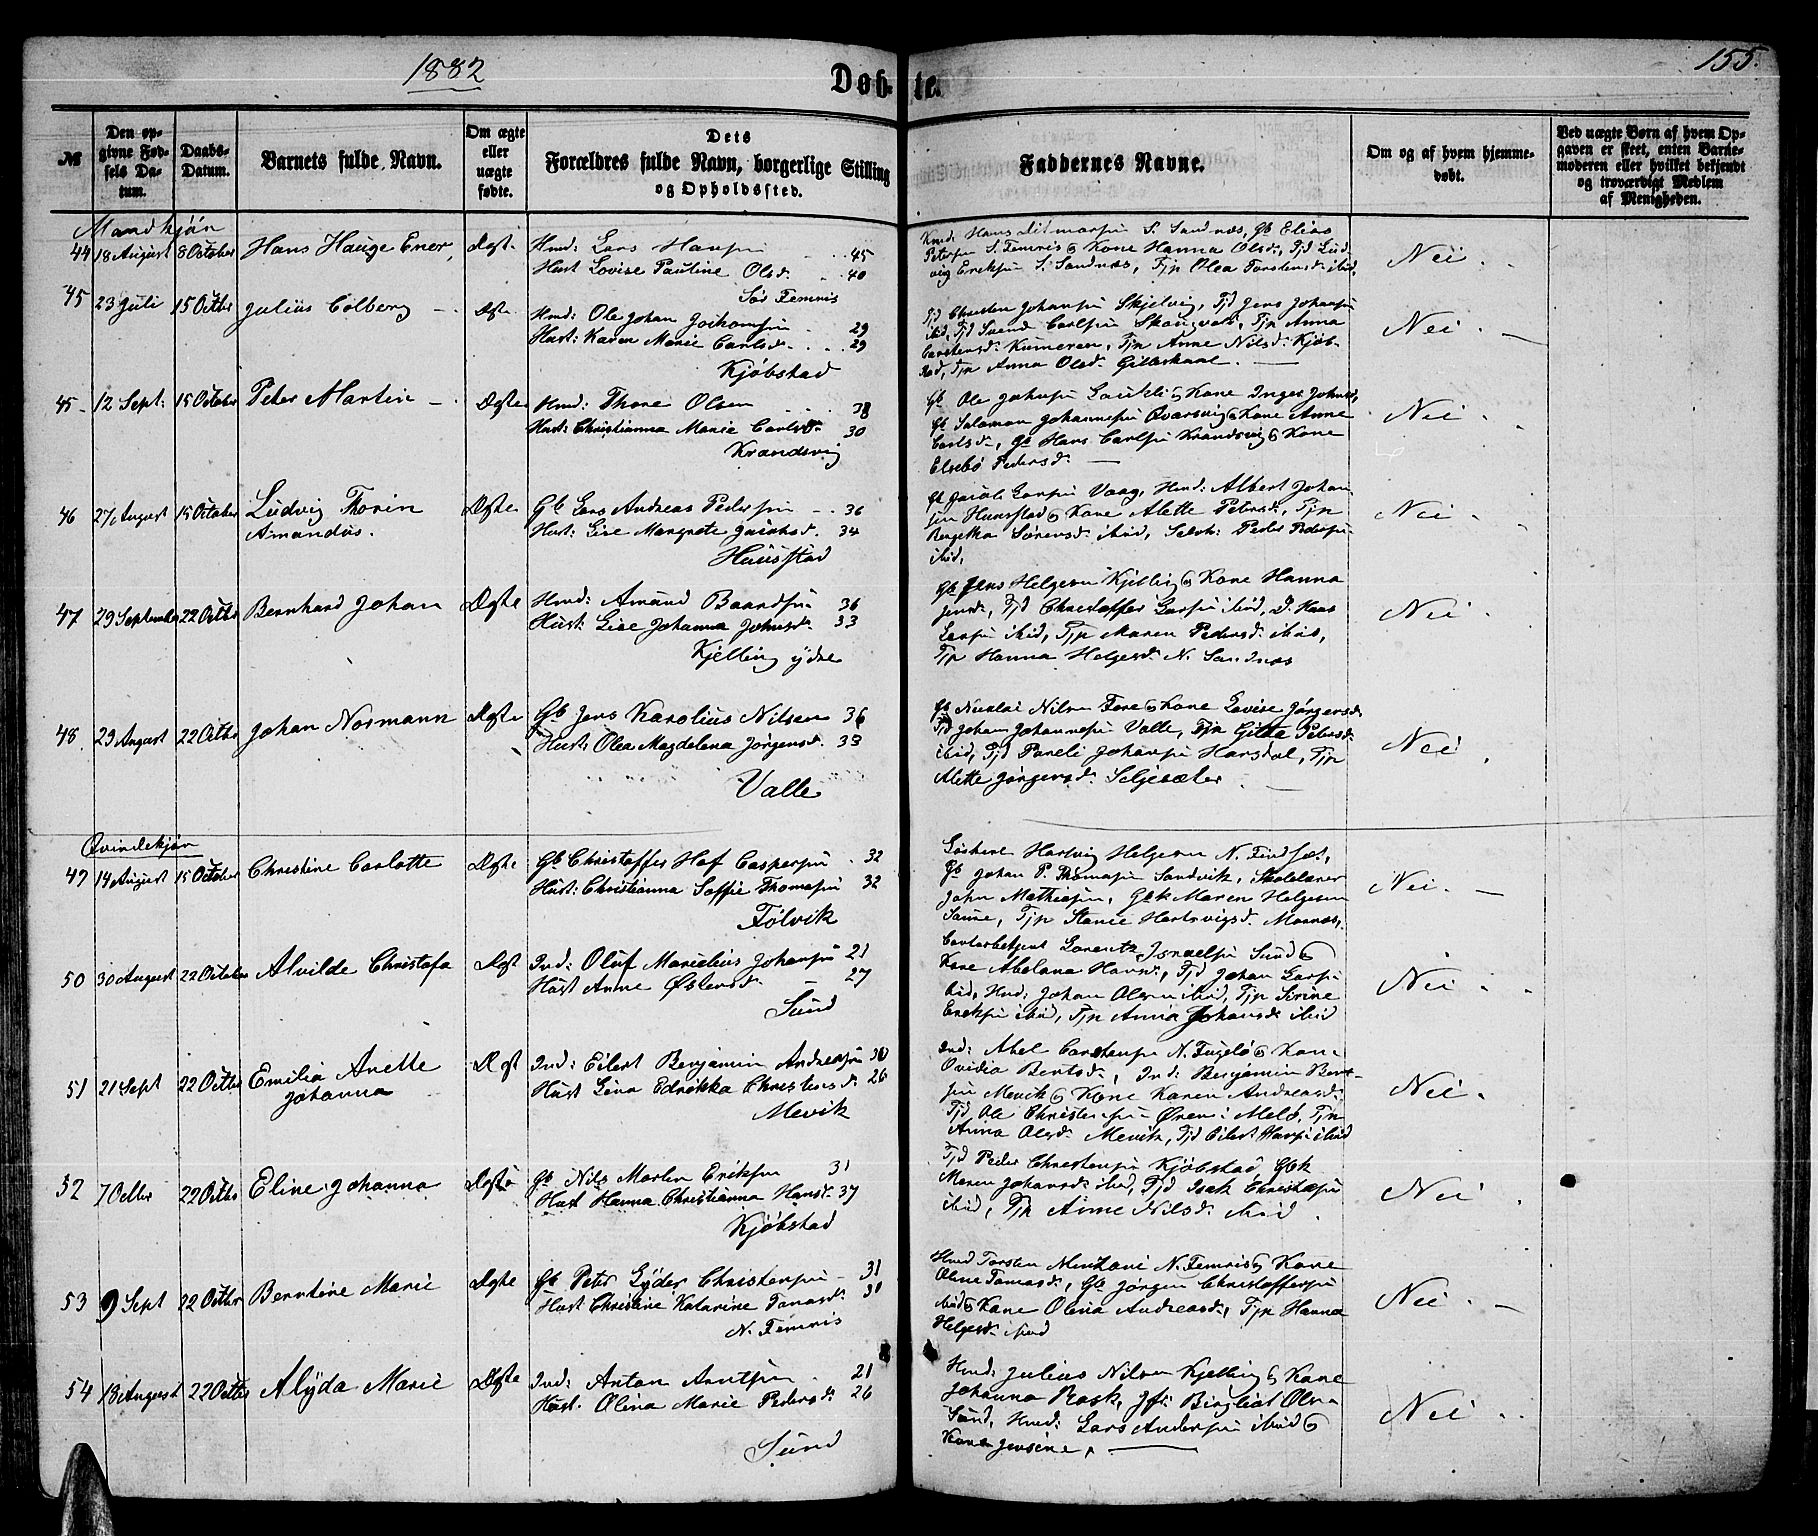 1882
Døbte.
155.
№
Den opgivne Fødsels Datum.
Daabs-Datum.
Barnets fulde Navn.
Om ægte eller uægte fødte.
Dets Forældres fulde Navn, borgerlige Stilling og Opholdssted.
Faddernes Navne.
Om og af hvem hjemmedøbt.
Ved uægte Børn af hvem Opgaven er skeet, enten Barnemoderen eller hvilket bekjendt og troværdigt Medlem af Menigheden.
Mandkjøn
44 18 August 8 October Hans Hauge Ener, Ægte Hmd: Lars Hansen 45
Hust Lovise Pauline Olsd. 40
Sør Femris
Kmd: Hans Ditmarsen S. Sandnæs, Gb Elias
Petersen S. Femris & Kone Hanna Olsd., Tjd Lud
vig Eriksen S. Sandnæs, Tjp Olea Torstensd. ibid.
Nei
45 23 Juli 15 Octbr Julius Colberg Ægte Hmd: Ole Johan Joihansen 29
Hust: Karen Marie Carlsd. 29
Kjøbstad
Tjd Christen Johansen Skjelvig, Tjd Jens Johansen
ibid, Tjd Svend Carlsen Tjp Anna
Carstensd. Kumeren, Tjp Anne Nilsd. Kjøb-
stad, Tjp Anna Olsd. Gilleskaal.
Nei
45 12 Sept: 15 October Peter Martin Ægte Hmd: Thore Olsen 38
Hust: Christianna Marie Carlsd. 30
Krandsvig
Gb Ole Johansen & Kone Inger Johnsd,
Gb Salamon Johannesen Qvarsvig & Kone Anne
Carlsd., Gb Hans Carlsen Krandsvig & Kone
Elsebø Pedersd.
Nei
46 27 August 15 October Ludvig Thorin Ægte Gb Lars Andreas Pedersen 36
Amandus. Hust: Lise Margrete Jacobsd. 34
Hunstad
Gb Jacob Larsen Vaag, Hmd: Albert Johan
sen Hunstad & Kone Alette Petersd., Tjp
Bergitha Sørensd. ibid, Selvst: Peder Pedersen
ibid,
Nei
47 29 September 22 Octbr Bernhard Johan Ægte Hmd: Amund Baardsen 36
Hust: Lise Johanna Johnsd. 33
Kjelling ydre
Gb Jens Helgesen Kjelling & Kone Hanna
Jensd., Tjd Christoffer Larsen ibid, D. Hans
Larsen ibid, Tjp Maren Pedersd. ibid,
Tjp Hanna Helgesd. N. Sandnæs
Nei
48. 29 August 22 Octbr Johan Normann Ægte Gb Jens Karolius Nilsen 36
Hust: Olea Magdelena Jørgensd. 33
Valle
Gb Nicolai Nilsen Fore & Kone Lovise Jørgensd.
Tjd Johan Johannesen Valle, Tjp Gitda Petersd.
ibid, Tjd Pareli Johansen Harsdal, Tjp
Alette Jørgensd. Seljesæter
Nei
Qvindekjøn
49 14 August 15 October Christine Carlotte Ægte Gb Christoffer Hof Caspersen 32
Hust: Christianna Soffie Thomasen 32
Følvik
Løskere Hartvig Helgesen N. Findset,
Gb Johan P. Thomasen Sandvik, Skolelærer
John Mathisen, Gbk Maren Helgesen
Saure, Tjp Stanie Hartvigsd. Mornæs,
Nei
50 30 August 22 October Alvilde Christofa Ægte Ind: Oluf Marielius Johansen 21
Hust Anne Østensd. 27
Sund
Lorentz Israelsen Sund &
Kone Abelana Hansd., Tjd Johan Larsen
ibid, Hmd: Johan Olsen ibid, Tjp Sirine
Eriksen ibid, Tjp Anna Johansd. ibid
Nei
51 21 Sept 22 Octbr Emilia Anette Ægte Ind: Eilert Benjamin Andreasen 30
Johanna Hust Lina Edrikka Christensd. 26
Mevik
Ind: Abel Carstensen N. Fuglø & Kone
Ovidia Bertsd., Ind: Benjamin Bert-
sen Mevik & Kone Karen Andreasd.
Tjd Ole Christensen Øren i Melø, Tjp
Anna Olsd. Mevik, Tjd Eilert Hansen ibid
Nei
52 7 Octbr 22 Octbr Eline Johanna Ægte Gb Nils Martin Eriksen 31
Hust Hanna Christianna Hansd. 37
Kjøbstad
Tjd Peder Christensen Kjøbstad, Gbk
Maren Johansd. ibid, Tjd Isak Christofsen
ibid, Tjp Anne Nilsd. ibid.
Nei
53 9 Sept 22 Octbr Berntine Marie Ægte Gb Peter Lyder Christensen 31
Hust Christine Katarine Tomasd. 30
N. Femris
Hmd Torsten N. Femris & Kone
Oline Tomasd., Gb Jørgen Christoffersen
ibid & Kone Olina Andreasd., Tjp Hanna
Helgesd. ibid
Nei
54 18 August 22 Octbr Alyda Marie Ægte Ind: Anton Arntsen 21
Hust: Olina Marie Pedersd. 26
Sund
Hmd: Julius Nilsen Kjelling & Kone
Johanna Rask, Jfr: Bergliot Olsen
Sund, Hmd: Lars Andersen ibid &
Kone Jensine,
Nei